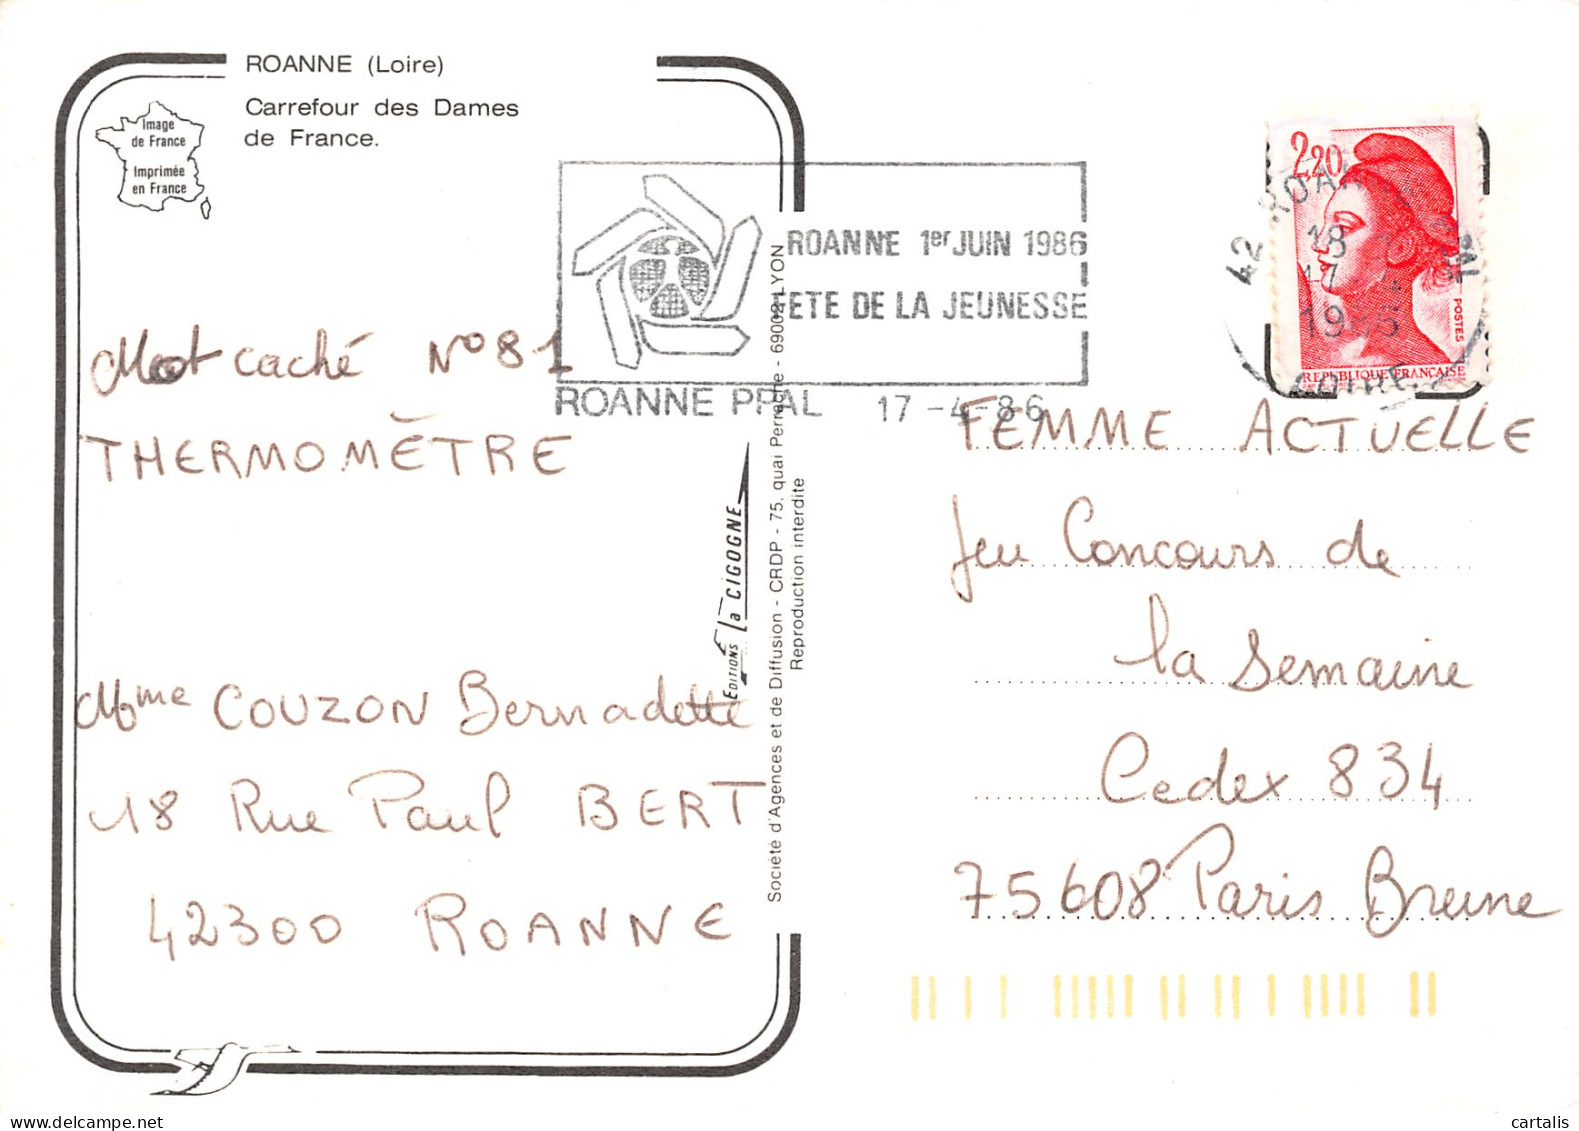 ROANNE (Loire)
Carrefour des Dames
de France.
Image
de France
Imprimée
en France
ROANNE 1er JUIN 1986
FETE DE LA JEUNESSE
ROANNE PPAL 17-4-86
2,20
POSTES
REPUBLIQUE FRANÇAISE
42
18
17
LOIRE
Mot caché N°81
THERMOMÈTRE
Mme COUZON Bernadette
18 Rue Paul BERT
42300 ROANNE
EDITIONS La CIGOGNE
Société d'Agences et de Diffusion - CRDP - 75, quai Perrache - 69002 LYON
Reproduction interdite
FEMME ACTUELLE
Jeu Concours de
la Semaine
Cedex 834
75608 Paris Brune
cartalis delcampe.net